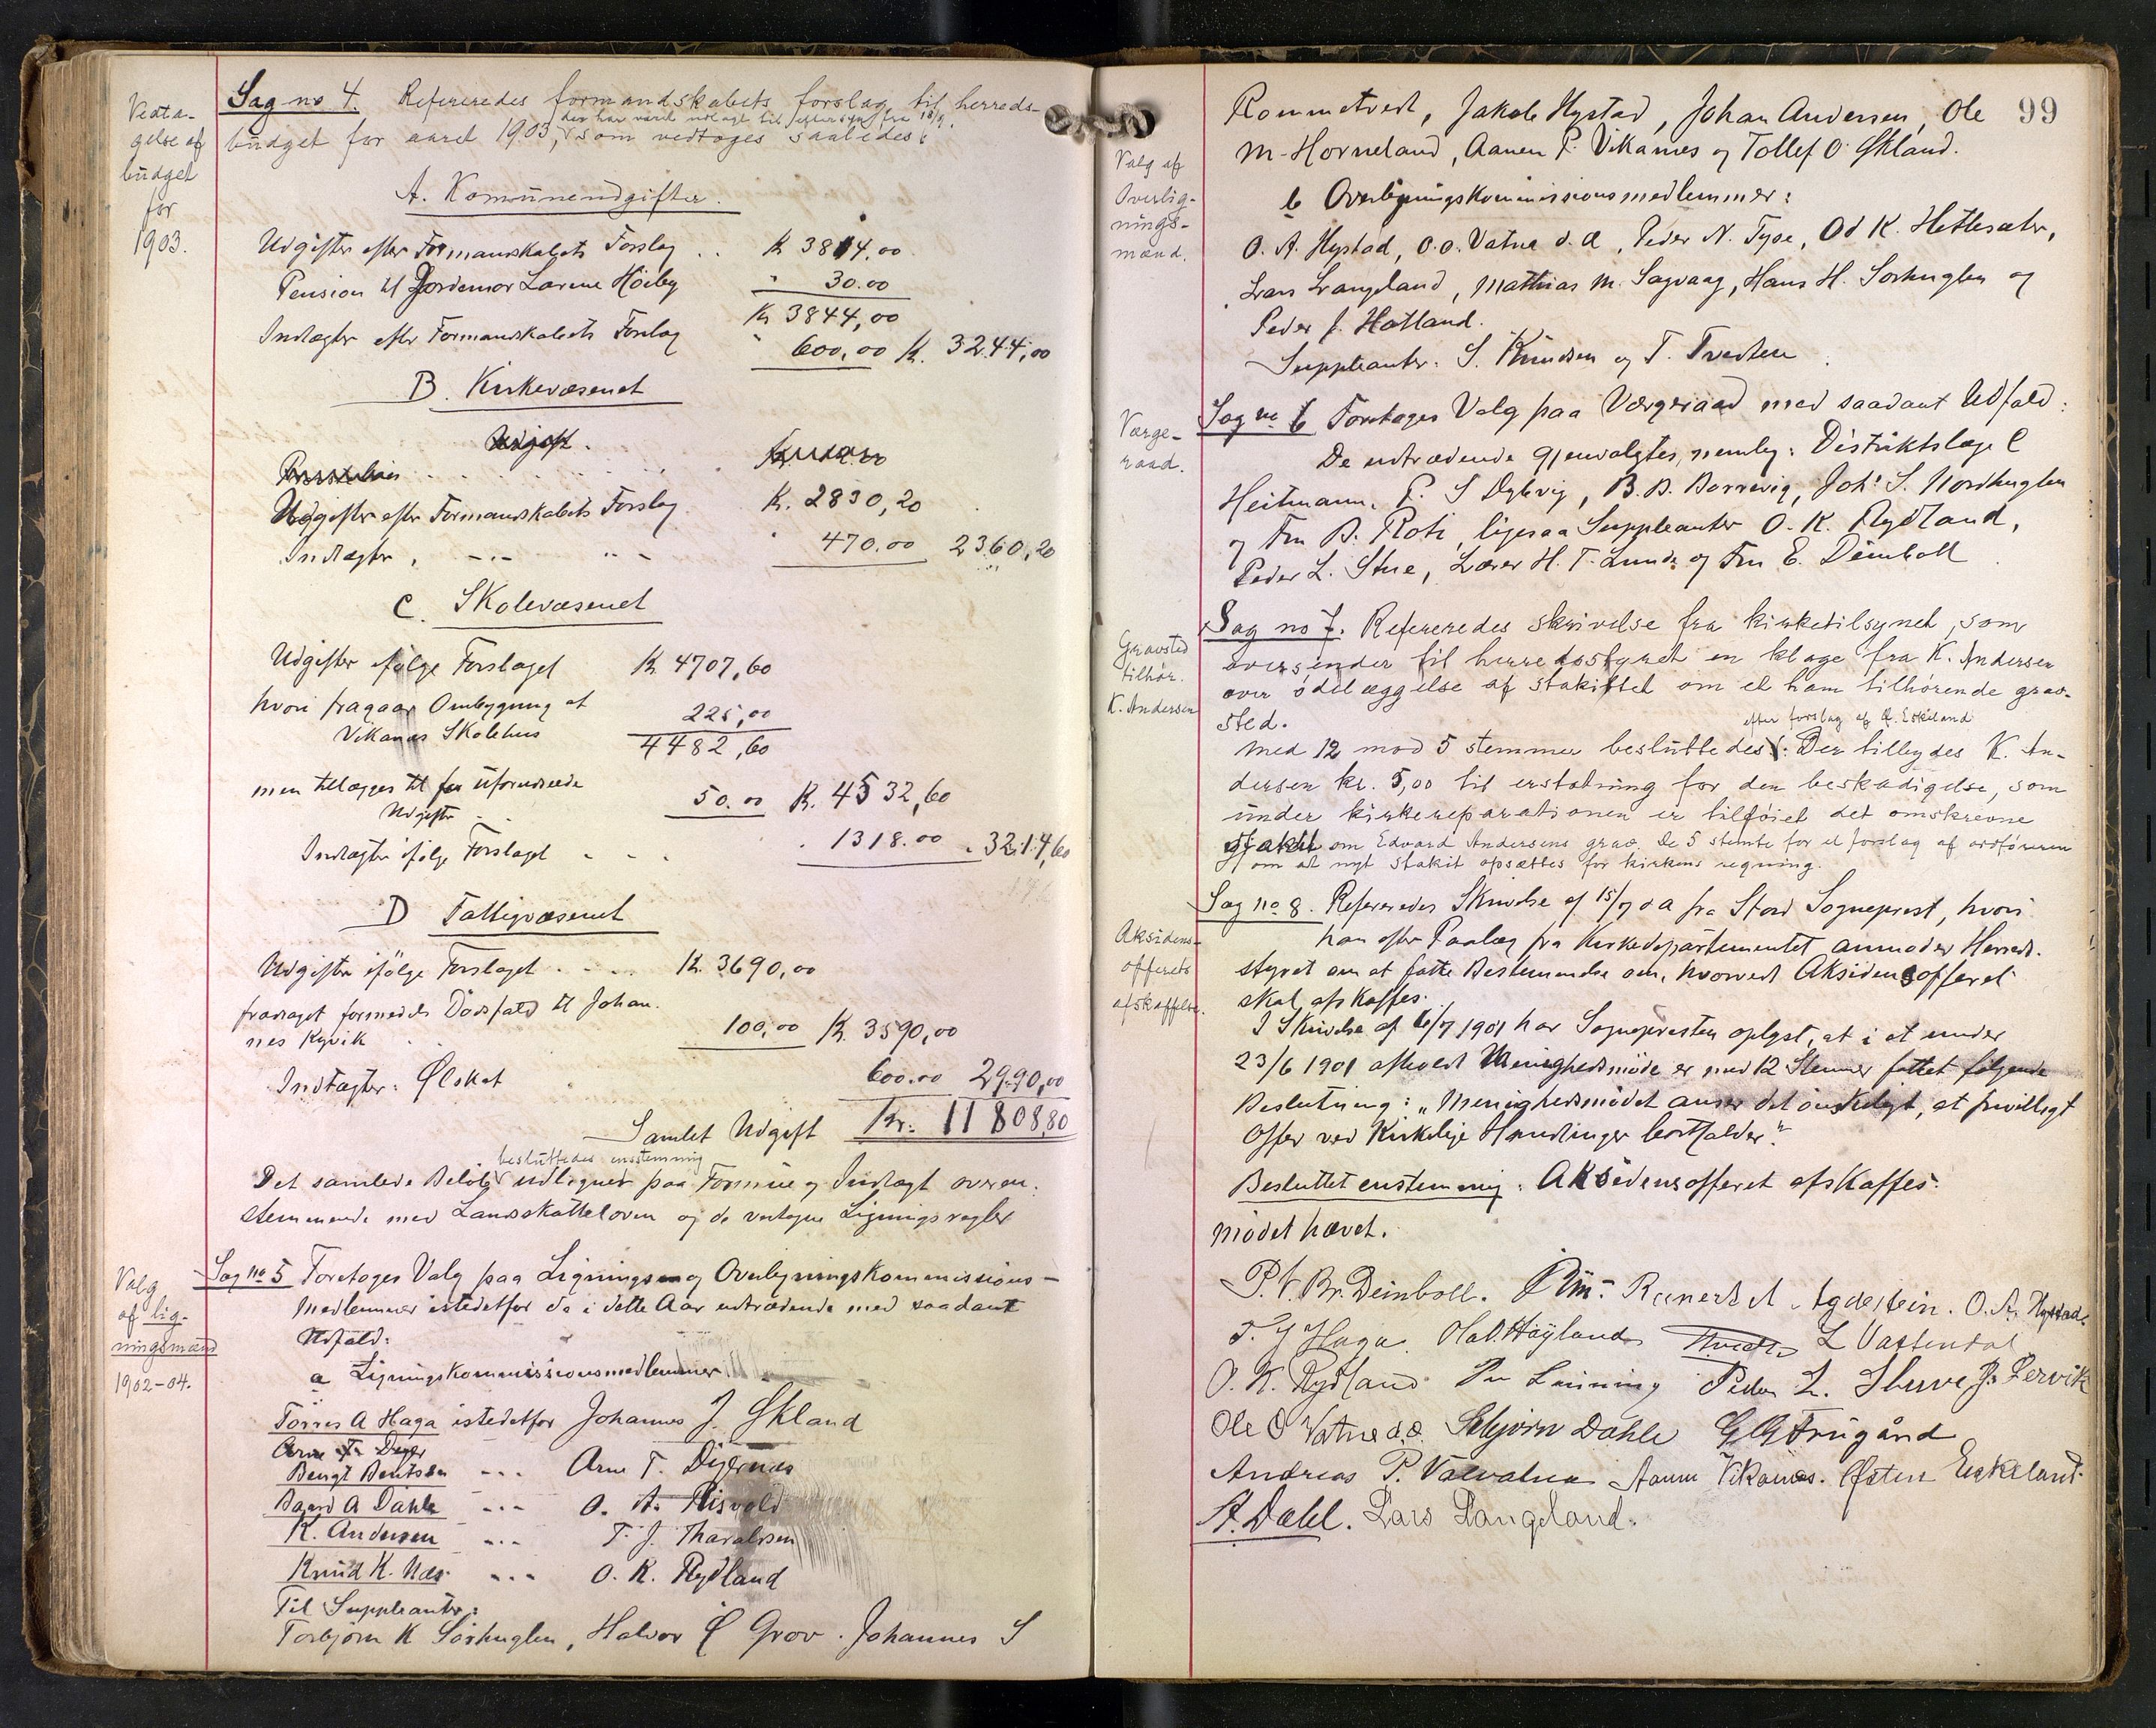 Vedta-
gelse af
budget
for
1903.
Sag no 4. Refereredes formandskabets forslag til herreds-
der har været udlagt til eftersyn fra 18/9,
budget for aaret 1903, som vedtoges saaledes:
A. Komuneudgifter.
Udgifter efter Formanskabets Forslag .. K 3814,00
Pension til Jordemor Larine Höiby " 30.00
Kr 3844,00
Indtægter efter Formanskabets Forslag " 600,00 K. 3244,00
B. Kirkevæsenet
Udgift.
Udgifter efter Formanskabets Forslag. K. 2830,20
Indtægter, -"- "- 470.00 2360,20
C. Skolevæsenet
Udgifter ifølge Forslaget K 4707,60
hvori fragaar Ombygning af
Vikanæs Skolehus 225,00
4482,60
men tillægges til for uforudseede
Udgifter 50.00 K. 4532,60
Indtægter ifølge Forslaget - - - . 1318.00 " 3214,60
D Fattigvæsenet
Udgifter ifölge Forslaget . - .. K. 3690,00
fradraget formedels Dödsfald til Johan-
nes Kyvik 100,00 K. 3590,00
Indtægter: Ølskat 600.00 2990,00
Samlet Udgift Kr. 11808,80
besluttedes enstemmig
Det samlede Belöb udlignet paa Formue og Indtægt overen-
stemmende med Landsskatteloven og de vedtagne Ligningsregler
Valg
af lig-
ningsmænd
1902-04.
Sag no 5 Foretoges Valg paa Lignings og Overligningskommissions-
Medlemmer istedetfor de i dette Aar udtrædende med saadant
Udfald:
a Ligningskommissionsmedlemmer
Törris A Haga istedetfor Johannes J. Økland
Bengt Bentsen -"- Arne T. Digernæs
Baard A Dahle -"- O. A. Risvold
K. Andersen -"- T. J. Tharaldsen
Knud K. Næs -"- O. K. Rydland
Til Suppleanter:
Torbjörn K Sörhuglen, Halvor Ø Grov. Johannes S
99
Rommetvedt, Jakob Hystad, Johan Andersen, Ole
M. Horneland, Aanen P. Vikanes og Tollef O. Økland.
Valg af
Overlig-
nings-
mænd.
b Overligningskommissionsmedlemmer:
O. A. Hystad, O. O. Vatna d. a, Peder N. Tyse, Od K. Hetlesæter,
Lars Langeland, Mathias M. Sagvaag, Hans H. Sörhuglen og
Peder J. Hatland.
Suppleanter: S. Knudsen og T. Tvedten
Værge-
raad.
Sag no 6 Foretoges Valg paa Værgeraad med saadant Udfald:
De udtrædende gjenvalgtes, nemlig: Distriktslæge C
Heitmann, P. S Dybvig, B. B. Borrevig, Johs S. Nordhuglen
og Fru B. Roti, ligesaa Suppleanter O. K. Rydland,
Peder L. Stue, Lærer H. T. Lunde og Fru E. Deinboll
Gravsted
tilhør.
K. Andersen
Sag no 7. Refereredes skrivelse fra kirketilsynet, som
oversender til herredsstyret en klage fra K. Andersen
over ødelæggelse af stakittet om et ham tilhørende grav-
sted.
efter forslag af Ø. Eskeland
Med 12 mod 5 stemmer besluttedes: Der tilbydes K. An-
dersen kr. 5,00 til erstatning for den beskadigelse, som
under kirkereparationen er tilføiet det omskrevne
stakit om Edvard Andersens grav. De 5 stemte for et forslag af ordføreren
om at nyt stakit opsættes for kirkens regning.
Aksidens-
offerets
afskaffelse.
Sag no 8. Refereredes Skrivelse af 15/7 d a fra Stord Sogneprest, hvori
han efter Paalæg fra Kirkedepartementet anmoder Herreds-
styret om at fatte Bestemmelse om, hvorvidt Aksidensofferet
skal afskaffes.
I Skrivelse af 6/7 1901 har Sognepresten oplyst, at i et under
23/6 1901 afholdt Menighedsmöde er med 12 Stemmer fattet følgende
Beslutning: „Menighedsmödet anser det önskeligt, at frivilligt
Offer ved Kirkelige Handlinger bortfalder".
Besluttet enstemmig: Aksidensofferet afskaffes.
Mödet hævet.
P. V. Br. Deinboll. Reinert A Agdestein. O. A. Hystad.
T. J Haga. Ola O. Høyland Tvedten L Vattendal
O. K. Rydland Per Leinning Peder L. Stuve J. Lervik
Ole O Vatna d. æ. Asbjørn Dahle G G Frugård
Andreas P. Valvatna Aanen Vikanes. Østen Eskeland.
A. Dahl. Lars Langeland.